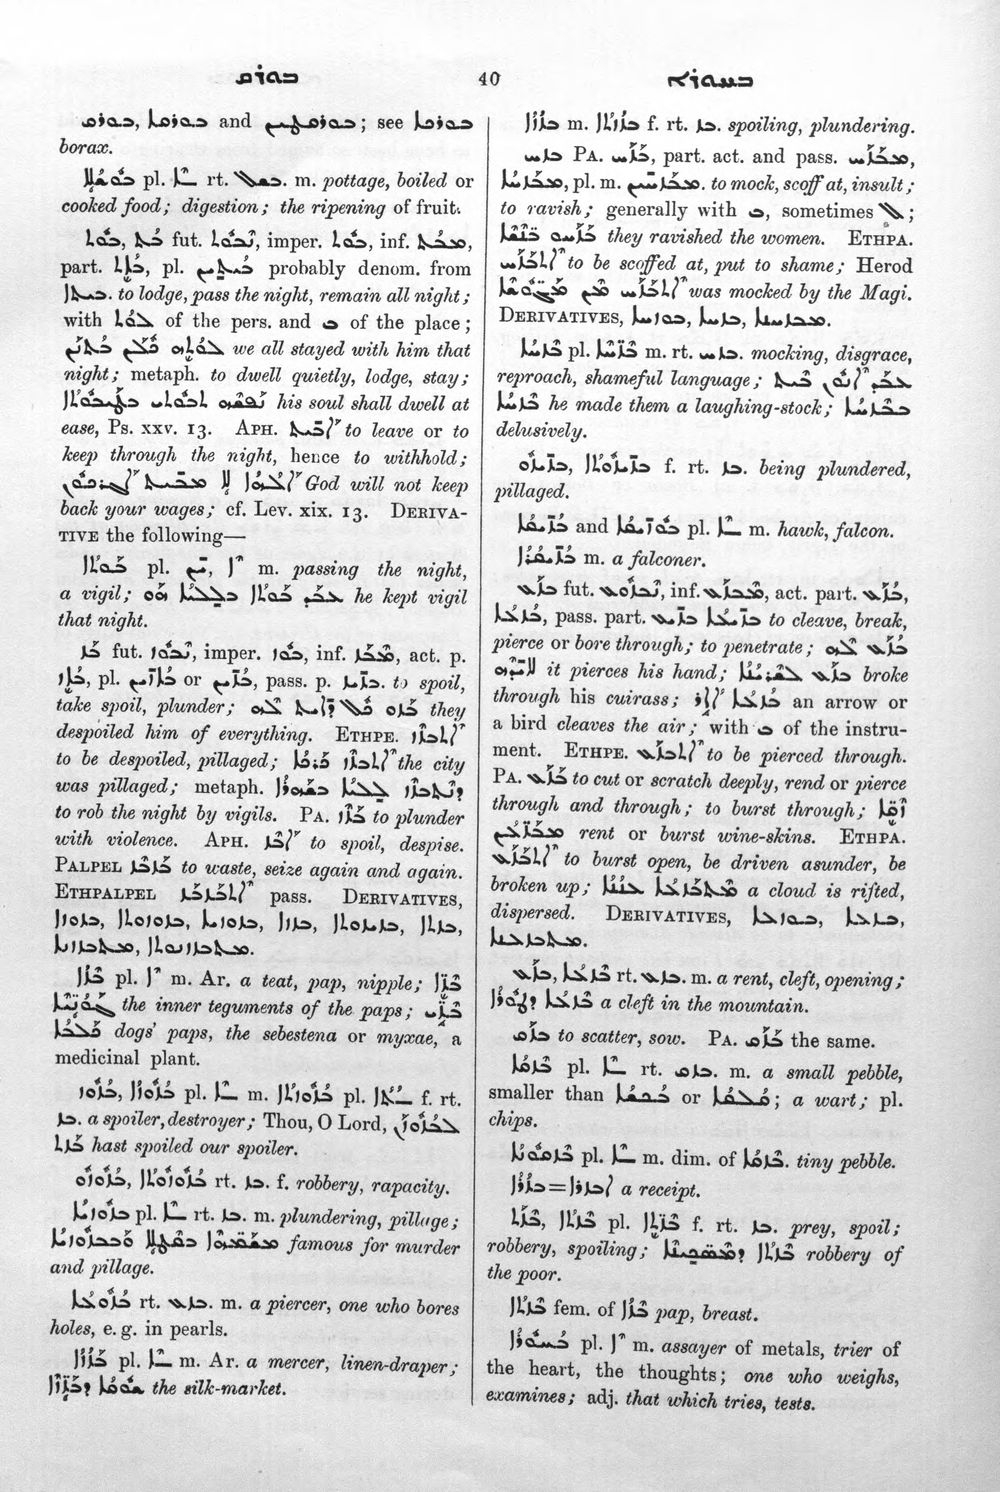 ܒܘܪܩ 40 ܒܚܘܪܐ
and ; see
borax.
ܒܘܫܠܐ pl. rt. ܒܫܠ. m. pottage, boiled or
cooked food; digestion; the ripening of fruit.
ܒܘܬ, ܒܬ fut. ܢܒܘܬ, imper. ܒܘܬ, inf. ܡܒܬ,
part. ܒܐܬ, pl. ܒܝܬܝܢ probably denom. from
ܒܝܬܐ. to lodge, pass the night, remain all night;
with ܠܘܬ of the pers. and ܒ of the place;
we all stayed with him that
night; metaph. to dwell quietly, lodge, stay;
his soul shall dwell at
ease, Ps. xxv. 13. APH. ܐܒܝܬ to leave or to
keep through the night, hence to withhold;
ܐܠܗܐ ܠܐ ܡܒܝܬ ܐܓܪܟܘܢ God will not keep
back your wages; cf. Lev. xix. 13. DERIVA-
TIVE the following—
ܒܘܬܐ pl. m. passing the night,
a vigil; he kept vigil
that night.
ܒܙ fut. ܢܒܘܙ, imper. ܒܘܙ, inf. ܡܒܙ, act. p.
ܒܐܙ, pl. or ܒܙܝܢ, pass. p. ܒܙܝܙ. to spoil,
take spoil, plunder; they
despoiled him of everything. ETHPE. ܐܬܒܙܙ
to be despoiled, pillaged; the city
was pillaged; metaph.
to rob the night by vigils. PA. ܒܙܙ to plunder
with violence. APH. ܐܒܙ to spoil, despise.
PALPEL ܒܙܒܙ to waste, seize again and again.
ETHPALPEL ܐܬܒܙܒܙ pass. DERIVATIVES,
ܒܙܐ pl. m. Ar. a teat, pap, nipple;
the inner teguments of the paps;
dogs' paps, the sebestena or myxae, a
medicinal plant.
ܒܙܘܙ, ܒܙܘܙܐ pl. m. ܒܙܘܙܬܐ pl. f. rt.
ܒܙ. a spoiler, destroyer; Thou, O Lord,
hast spoiled our spoiler.
ܒܙܘܙܘ, ܒܙܘܙܘܬܐ rt. ܒܙ. f. robbery, rapacity.
ܒܙܘܙܝܐ pl. rt. ܒܙ. m. plundering, pillage;
famous for murder
and pillage.
ܒܙܘܥܐ rt. ܒܙܥ. m. a piercer, one who bores
holes, e. g. in pearls.
ܒܙܙܐ pl. m. Ar. a mercer, linen-draper;
the silk-market.
ܒܙܙܐ m. ܒܙܙܬܐ f. rt. ܒܙ. spoiling, plundering.
ܒܙܚ PA. ܒܙܚ, part. act. and pass. ܡܒܙܚ,
ܡܒܙܚܐ, pl. m. ܡܒܙܚܝܢ. to mock, scoff at, insult;
to ravish; generally with ܒ, sometimes ܠ;
ܒܙܚܘ ܒܢܫܐ they ravished the women. ETHPA.
ܐܬܒܙܚ to be scoffed at, put to shame; Herod
ܐܬܒܙܚ ܡܢ ܡܓܘܫܐ was mocked by the Magi.
DERIVATIVES,
ܒܙܚܐ pl. m. rt. ܒܙܚ. mocking, disgrace,
reproach, shameful language; ܥܒܕ ܐܢܘܢ ܒܝܬ
ܒܙܚܐ he made them a laughing-stock; ܒܒܙܚܐ
delusively.
ܒܙܝܙܘ, ܒܙܝܙܘܬܐ f. rt. ܒܙ. being plundered,
pillaged.
ܒܙܝܩܐ and ܒܘܙܝܩܐ pl. m. hawk, falcon.
ܒܙܝܩܪܐ m. a falconer.
ܒܙܥ fut. ܢܒܙܘܥ, inf. ܡܒܙܥ, act. part. ܒܙܥ,
ܒܙܥܐ, pass. part. ܒܙܝܥ ܒܙܝܥܐ to cleave, break,
pierce or bore through; to penetrate; ܒܙܥ ܠܗ
ܠܐܝܕܗ it pierces his hand; ܒܙܥ broke
through his cuirass; ܒܙܥܐ ܐܐܪ an arrow or
a bird cleaves the air; with ܒ of the instru-
ment. ETHPE. ܐܬܒܙܥ to be pierced through.
PA. ܒܙܥ to cut or scratch deeply, rend or pierce
through and through; to burst through; ܙܩܐ
ܡܒܙܥܝܢ rent or burst wine-skins. ETHPA.
ܐܬܒܙܥ to burst open, be driven asunder, be
broken up; ܥܢܢܐ a cloud is rifted,
dispersed. DERIVATIVES,
ܒܙܥ, ܒܙܥܐ rt. ܒܙܥ. m. a rent, cleft, opening;
ܒܙܥܐ ܕܛܘܪܐ a cleft in the mountain.
ܒܙܩ to scatter, sow. PA. ܒܙܩ the same.
ܒܙܩܐ pl. rt. ܒܙܩ. m. a small pebble,
smaller than or ; a wart; pl.
chips.
ܒܙܩܘܢܐ pl. m. dim. of ܒܙܩܐ. tiny pebble.
a receipt.
ܒܙܬ, ܒܙܬܐ pl. f. rt. ܒܙ. prey, spoil;
robbery, spoiling; ܒܙܬܐ ܕܡܣܟܢܐ robbery of
the poor.
ܒܙܬܐ fem. of ܒܙܐ pap, breast.
ܒܚܘܪܐ pl. m. assayer of metals, trier of
the heart, the thoughts; one who weighs,
examines; adj. that which tries, tests.